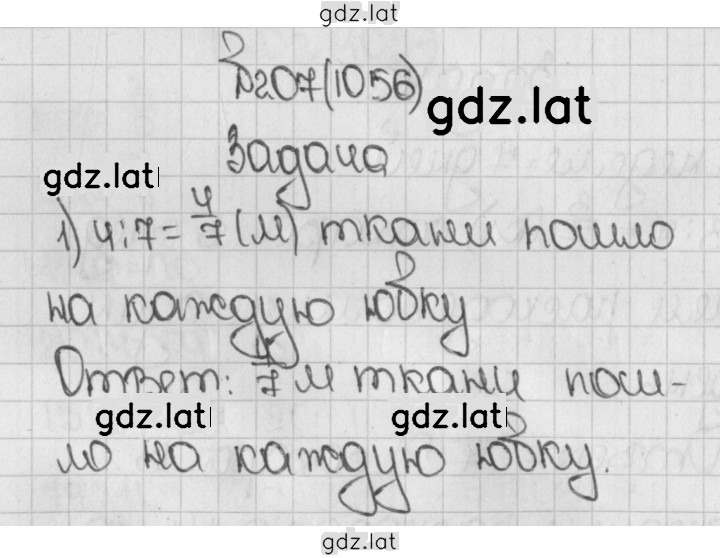 gdz.lat
№207(1056)
gdz.lat
Задача
gdz.lat
1) 4:7=4/7 (м) ткани пошло
на каждую юбку
Ответ: 4/7 м ткани пош-
gdz.lat gdz.lat
ло на каждую юбку.
gdz.lat